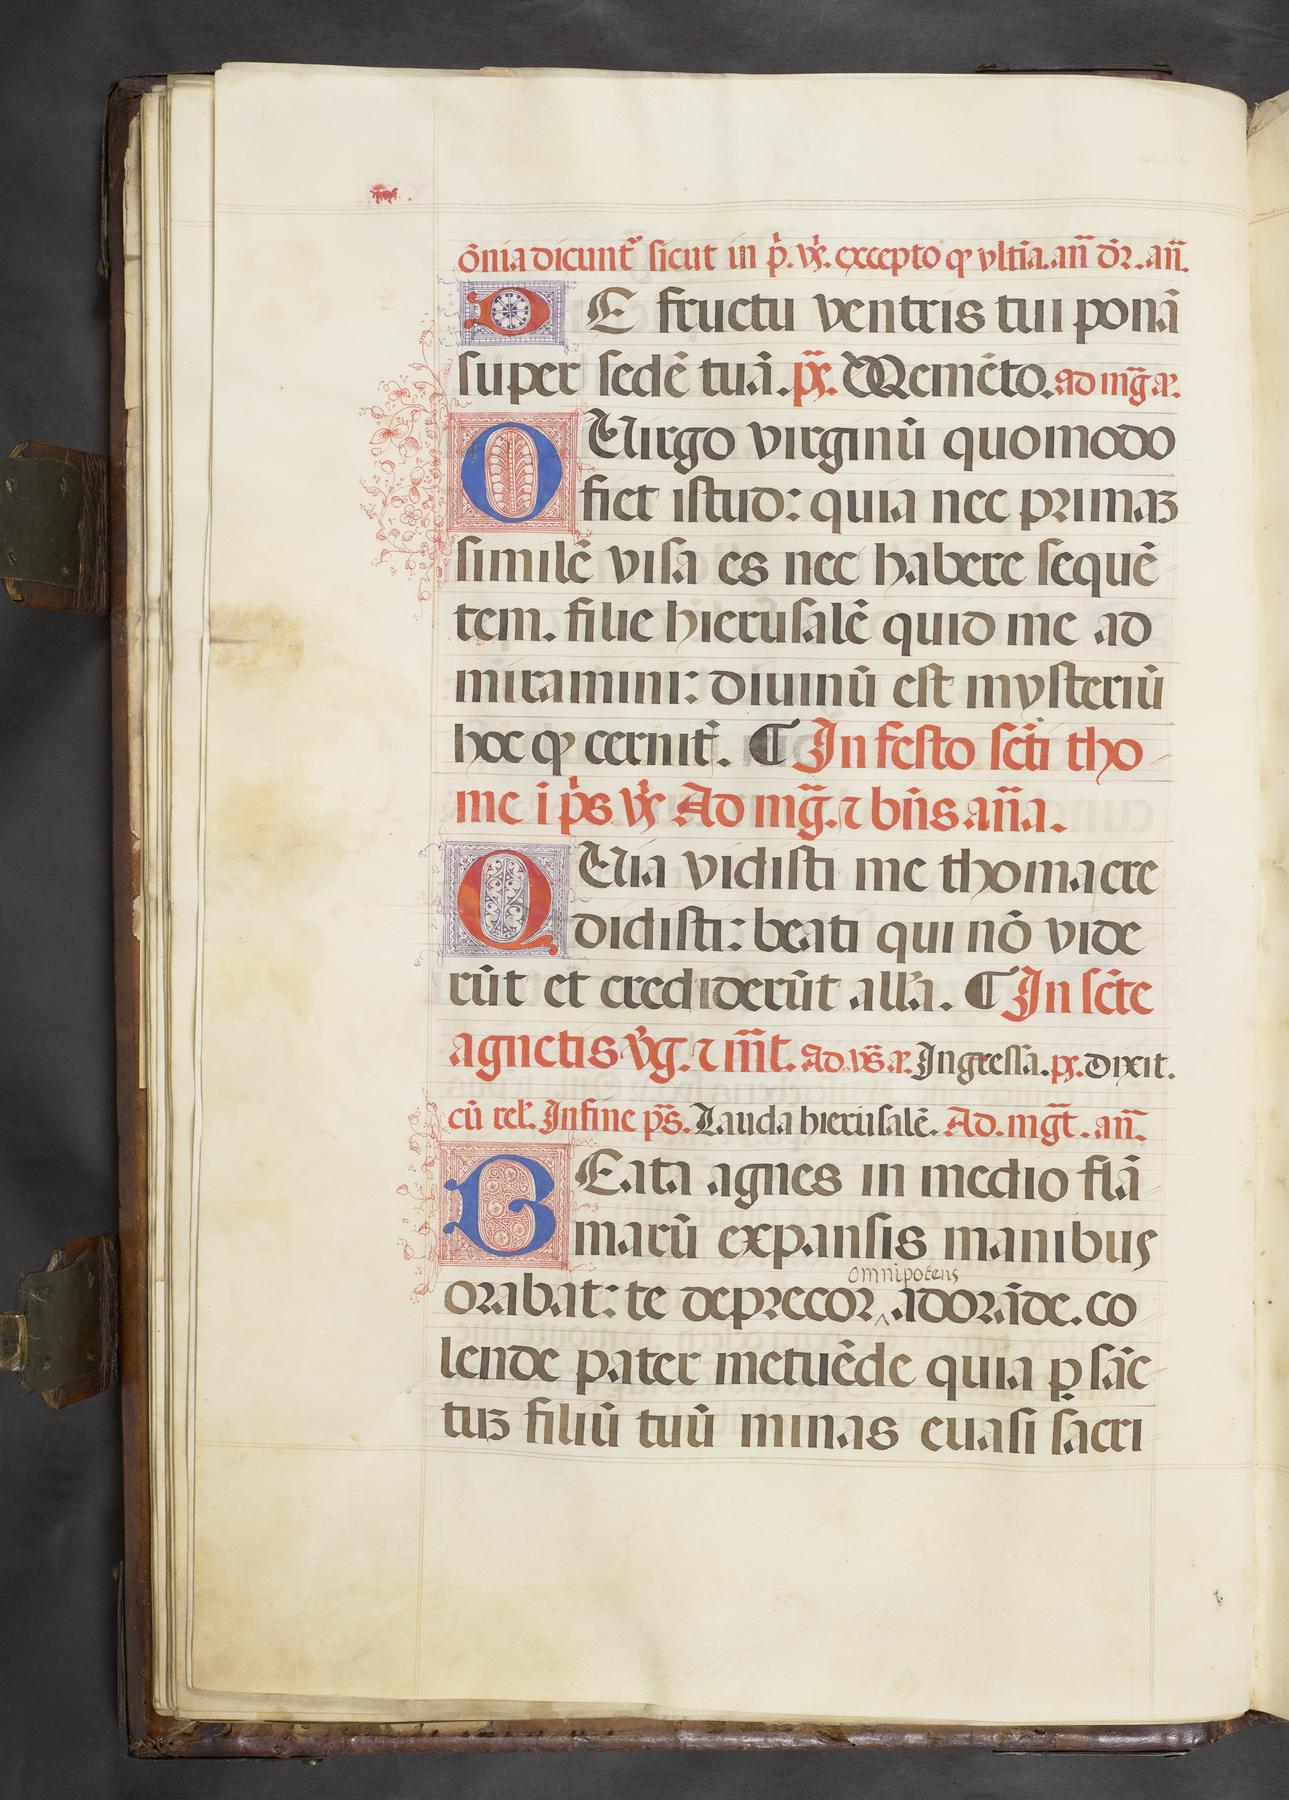 ōnia dicunt᷑ sicut in p̄. vr̄. excepto ꝙ vltīa. an̄ dr̄. an̄.
DE fructu ventris tui ponā
super sedē tuā. p̄s. Memēto. ad mḡ. a.
O Uirgo virginū quomodo
fiet istud: quia nec primaȝ
similē visa es nec habere sequē
tem. filie hierusalē quid me ad
miramini: diuinū est mysteriū
hoc ꝙ cernit᷑. ¶ In festo scti tho
me i p̄s vr̄ Ad mḡ. ⁊ bn̄s an̄a.
QUia vidisti me thoma cre
didisti: beati qui nō vide
rūt et crediderūt alla. ¶ In scte
agnetis vḡ. ⁊ m̄t. Ad. vs̄ a. Ingressa. ps. dixit.
cū rel. In fine ps̄. Lauda hierusalē. Ad. mḡt. an̄.
BEata agnes in medio flā
marū expansis manibus
omnipotens
orabat: te deprecor adorāde. co
lende pater metuēde quia ꝑ sāc
tuȝ filiū tuū minas euasi sacri